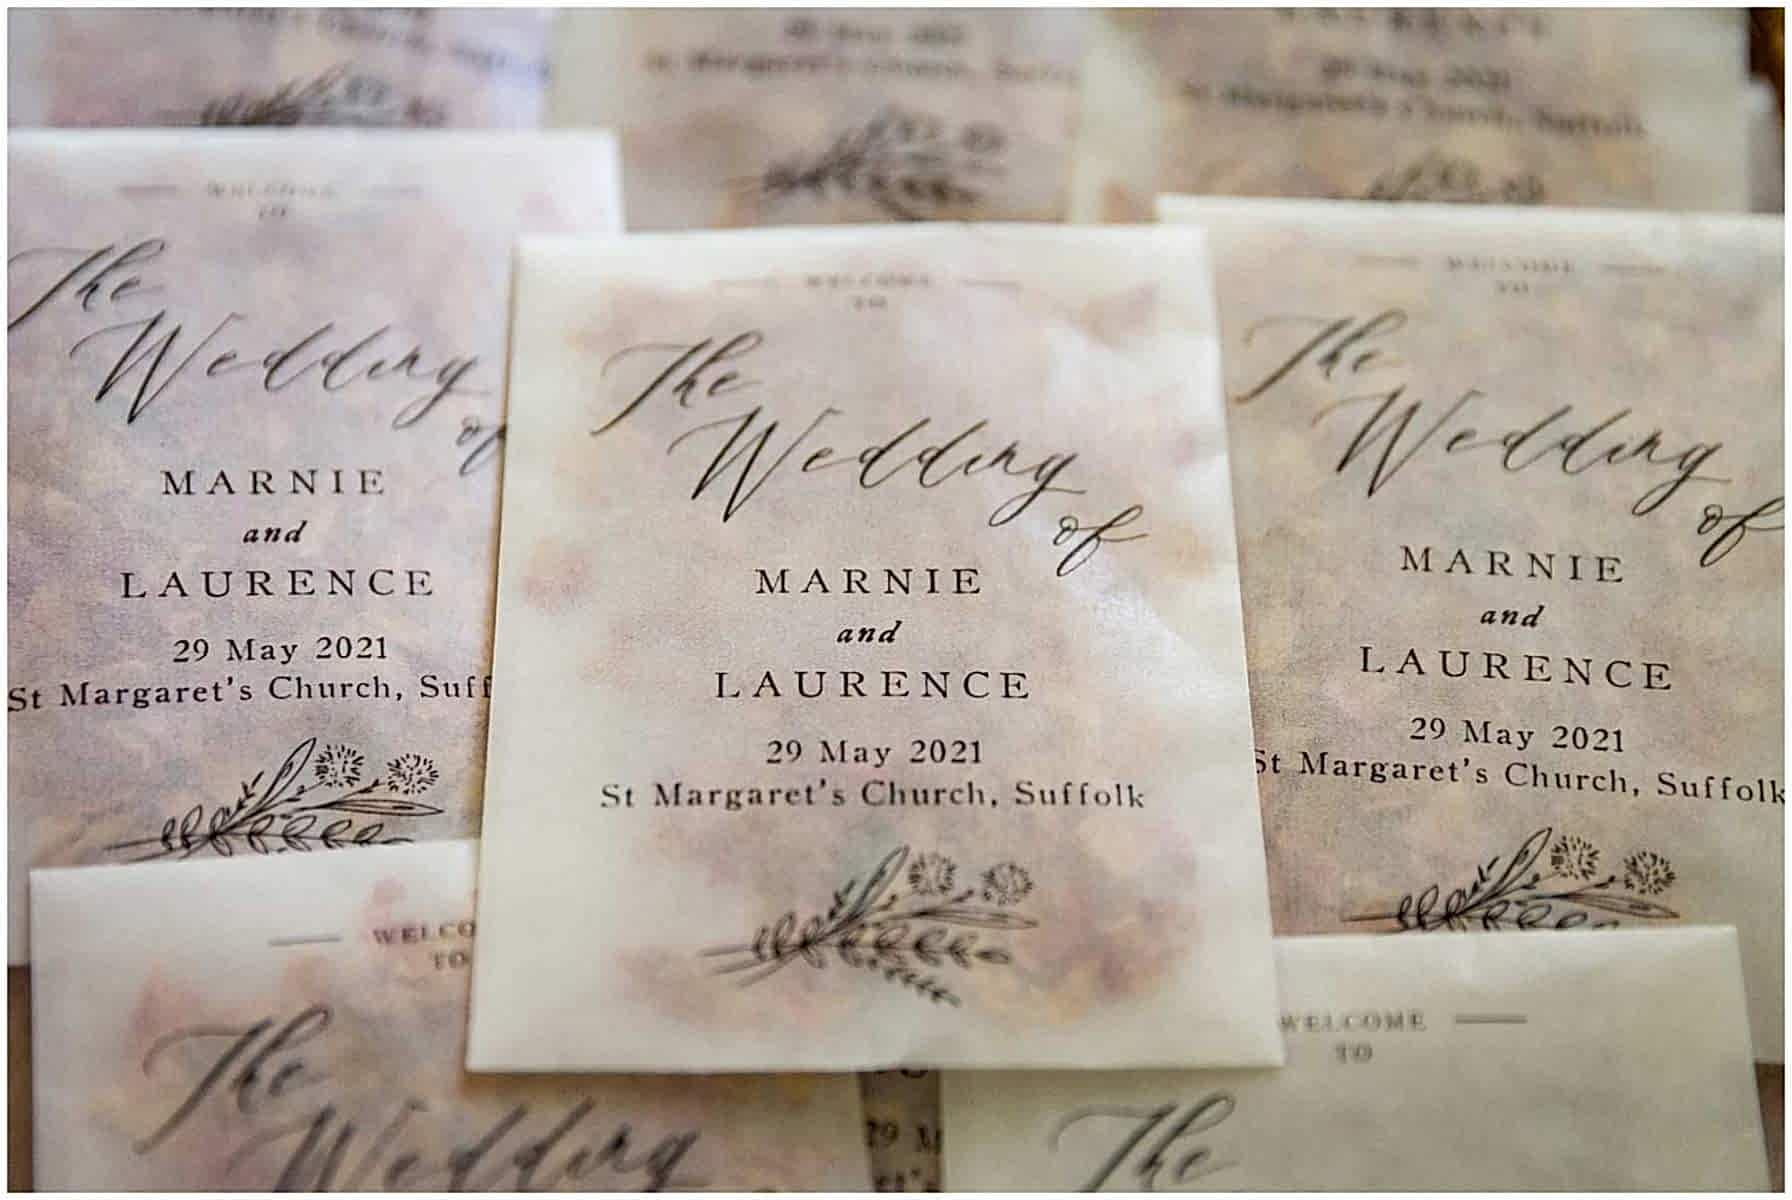 St Margaret's Church, Suffolk
2021
St Margaret's Church, Suffolk
WELCOME
TO
The
Wedding
of
MARNIE
and
LAURENCE
29 May 2021
St Margaret's Church, Suff
WELCOME
TO
The
Wedding
of
MARNIE
and
LAURENCE
29 May 2021
St Margaret's Church, Suffolk
WELCOME
TO
The
Wedding
of
MARNIE
and
LAURENCE
29 May 2021
St Margaret's Church, Suffolk
WELCO
TO
The
Wedding
29 M
WELCOME
TO
The